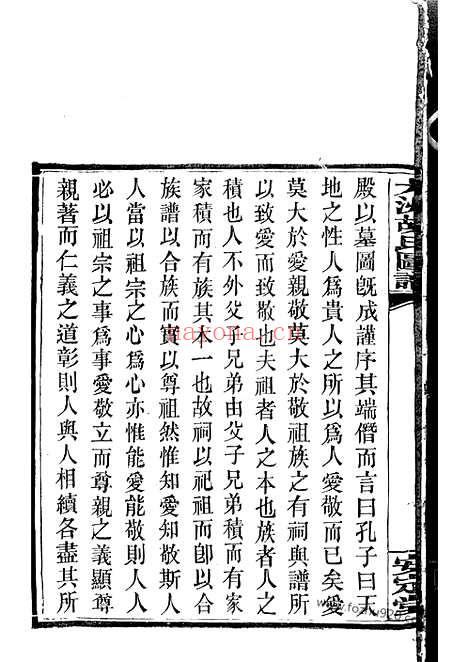 殿以墓圖旣成謹序其端僭而言曰孔子曰天
地之性人爲貴人之所以爲人愛敬而已矣愛
莫大於愛親敬莫大於敬祖族之有祠與譜所
以致愛而致敬也夫祖者人之本也族者人之
積也人不外父子兄弟由父子兄弟積而有家
家積而有族其本一也故祠以祀祖而卽以合
族譜以合族而實以尊祖然惟知愛知敬斯人
人當以祖宗之心爲心亦惟能愛能敬則人人
必以祖宗之事爲事愛敬立而尊親之義顯尊
親著而仁義之道彰則人與人相續各盡其所